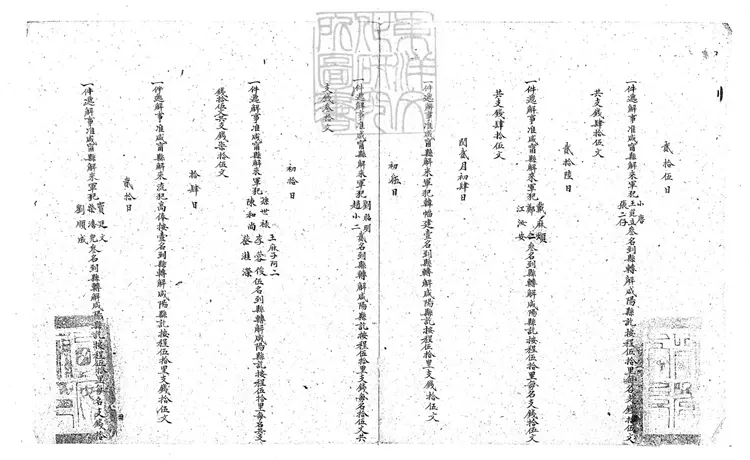 貳拾伍日
一件遞解事准咸甯縣解來軍犯小唐王莊立張二仔叁名到縣轉解咸陽縣訖按程伍拾里每名支錢拾伍文
共支錢肆拾伍文
貳拾陸日
一件遞解事准咸甯縣解來軍犯戴麻頭江汝安叁名到縣轉解咸陽縣訖按程伍拾里每名支錢拾伍文
共支錢肆拾伍文
閏貳月初肆日
一件遞解事准咸甯縣解來軍犯韓幅建壹名到縣轉解咸陽縣訖按程伍拾里支錢拾伍文
初伍日
一件遞解事准咸甯縣解來軍犯劉拓明趙小二貳名到縣轉解咸陽縣訖按程伍拾里支錢每名拾伍文共
支錢叁拾文
初拾日
一件遞解事准咸甯縣解來軍犯孫世禄陳和尚王麻子阿二李蓉俊伍名到縣轉解咸陽縣訖按程伍拾里每名支
錢拾伍文共支錢柒拾伍文
拾肆日
一件遞解事准咸甯縣解來流犯高俸按壹名到縣轉解咸陽縣訖按程伍拾里支錢拾伍文
貳拾日
一件遞解事准咸甯縣解來軍犯賈廷文劉順成叁名到縣轉解咸陽縣訖按程伍拾里每名支錢拾